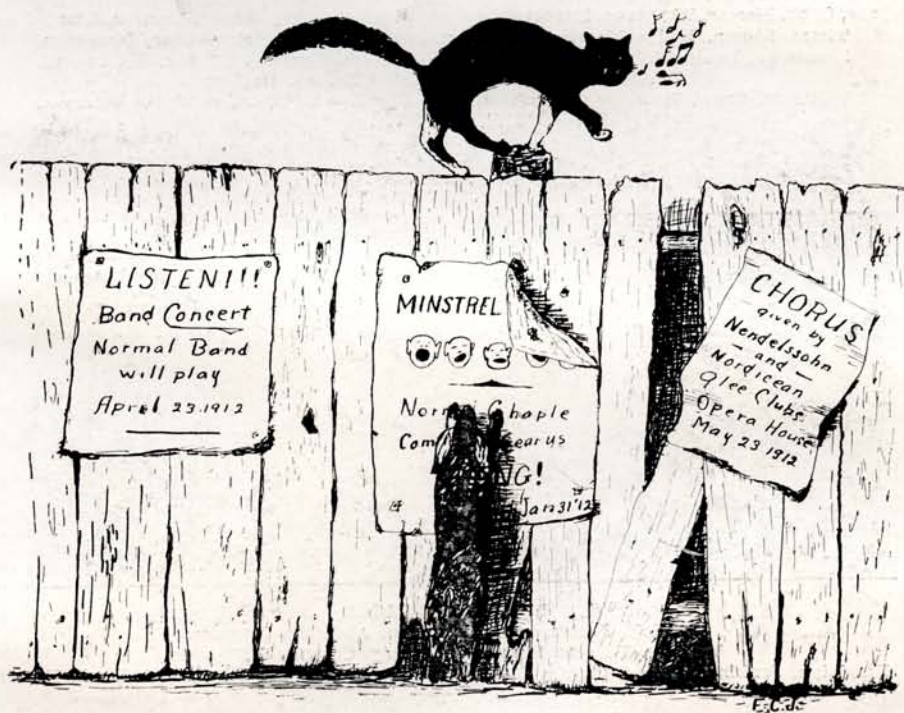 LISTEN!!!
Band Concert
Normal Band
will play
April 23.1912
MINSTREL
Chaple
Com ear us
NG!
Jan 31 '12
CHORUS
given by
Nendelssohn
- and -
Nordicean
Glee Clubs.
Opera House
May 23 1912
F.C.d.